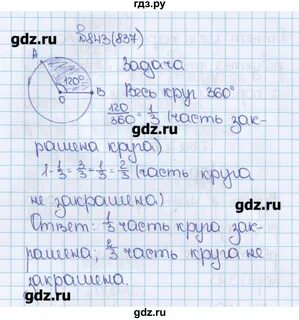 gdz.ru
№843(837)
gdz.ru
gdz.ru
A
120°
O
B
Задача
Весь круг 360°
120/360 = 1/3 (часть зак-
рашена круга)
gdz.ru
gdz.ru
1-1/3=3/3-1/3=2/3 (часть круга
не закрашена)
gdz.ru
gdz.ru
Ответ: 1/3 часть круга зак-
рашена; 2/3 часть круга не
закрашена.
gdz.ru
gdz.ru